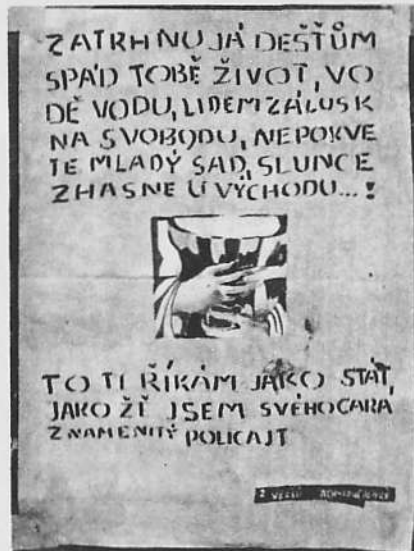 ZATRHNU JÁ DEŠŤŮM
SPÁD TOBĚ ŽIVOT, VO
DĚ VODU, LIDEM ZÁLUSK
NA SVOBODU, NEPOKVE
TE MLADÝ SAD, SLUNCE
ZHASNE U VÝCHODU...!
TO TI ŘÍKÁM JAKO STÁT,
JAKO ŽĚ JSEM SVÉHO CARA
ZNAMENITÝ POLICAJT
Z VERŠŮ